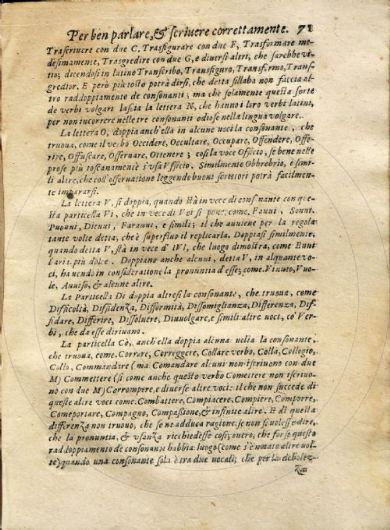 Per ben parlare, & scriuere correttamente. 71
Trascriuere con due C, Trasfigurare con due F, Trasformare me-
desimamente, Trasgredire con due G, e diuersi altri, che sarebbe vi-
tio; dicendosi in latino Transcribo, Transfiguro, Transformo, Trans-
gredior. E però più tosto potrà dirsi, che detta sillaba non faccia al-
tro raddoppiamento de consonanti; ma che solamente questa sorte
de verbi volgari lascia la lettera N, che hanno i loro verbi latini,
per non incorrere nelle tre consonanti odiose nella lingua volgare.
La lettera O, doppia anch'ella in alcune voci la consonante, che
truoua, come il verbo Occidere, Occultare, Occupare, Offendere, Offe-
rire, Offuscare, Osseruare, Ottenere; così la voce Officio, se bene nelle
prose più toscanamente s'vsa Vfficio. Similmente Obbrobrio, e simi-
li altre, che coll'osseruatione leggendo buoni scrittori potrà facilmen-
te impararsi.
La lettera V, si doppia, quando stà in vece di consonante con que-
sta particella Vi, che in vece di Voi si pone, come, Fauui, Souui,
Puouui, Dieui, Farauui, e simili; il che auuiene per la regola
tante volte detta, che è superfluo il replicarla. Doppiasi similmente,
quando detta V, stà in vece d'IVI, che luogo dimostra, come Euui
l'aria più dolce. Doppiano anche alcuni, detta V, in alquante vo-
ci, hauendo in consideratione la pronuntia d'esse; come Viuuto, Vuo-
le, Auuiso, & alcune altre.
La Particella Di doppia altresì la consonante, che truoua, come
Difficoltà, Diffidenza, Difformità, Dissomiglianza, Differenza, Dif-
fidare, Differire, Dissoluere, Diuuolgare, e simili altre voci, co' Ver-
bi, che da esse diriuano.
La particella Cò, anch'ella doppia alcuna volta la consonante,
che truoua, come, Correre, Correggere, Collare verbo, Colla, Collegio,
Collo, Commandare (ma Comandare alcuni non scriuono con due
M) Commettere (sì come anche questo verbo Comettere non scriuo-
no con due M) Corrompere, e diuerse altre voci: il che non succede di
queste altre voci come, Combattere, Compiacere, Compiere, Comporre,
Comportare, Compagno, Compassione, & infinite altre. E di questa
differenza non truouo, che se ne adduca ragione, se non si volesse dire,
che la pronuntia, & vsanza richiedesse così; ouero, che forse questo
raddoppiamento de consonanti habbia luogo (come s'è notato altre vol-
te) quando una consonante sola è tra due vocali; che per la debolez-
Zza